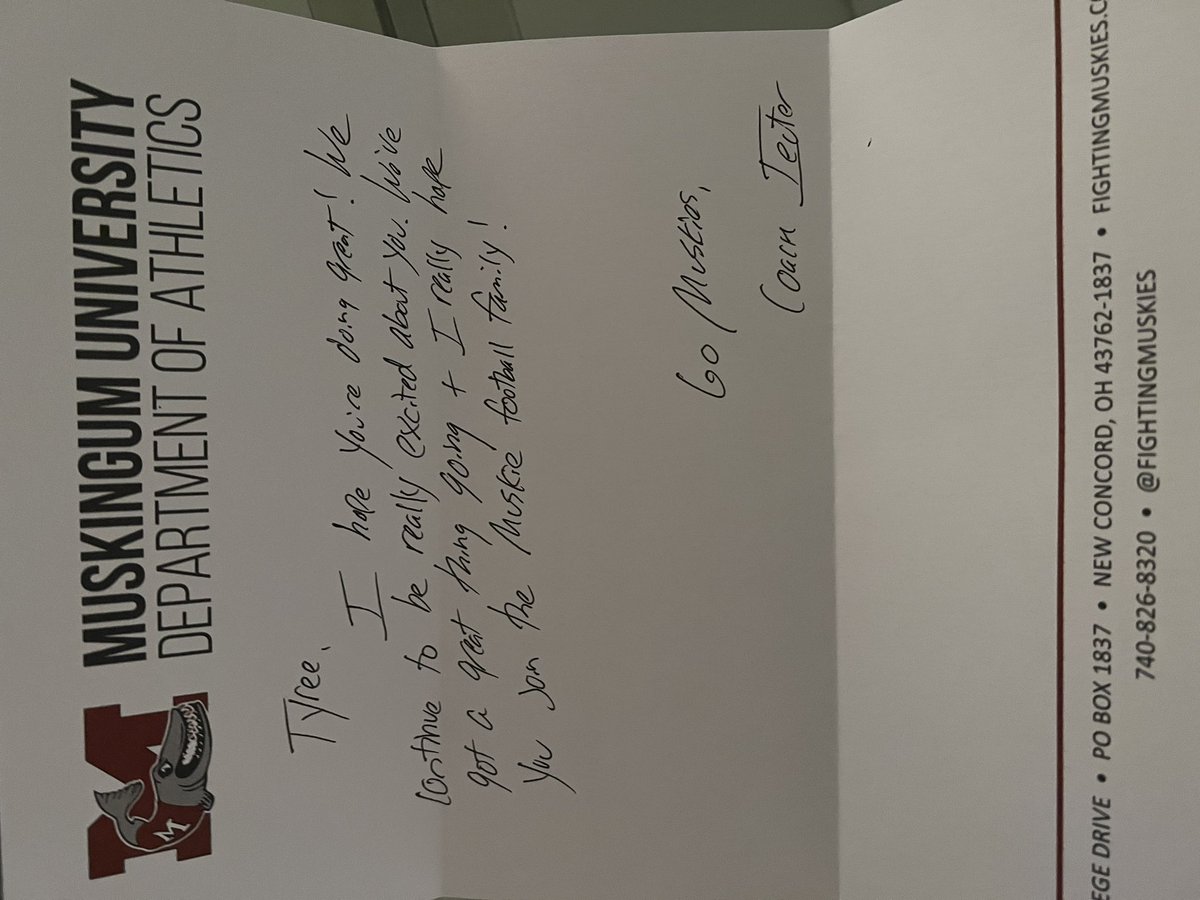 MUSKINGUM UNIVERSITY
DEPARTMENT OF ATHLETICS
M
Tyree,
I hope you're doing great! We
continue to be really excited about you. We've
got a great thing going + I really hope
you join the Muskie football family!
Go Muskies,
Coach Teeter
EGE DRIVE • PO BOX 1837 • NEW CONCORD, OH 43762-1837 • FIGHTINGMUSKIES.C
740-826-8320 • @FIGHTINGMUSKIES